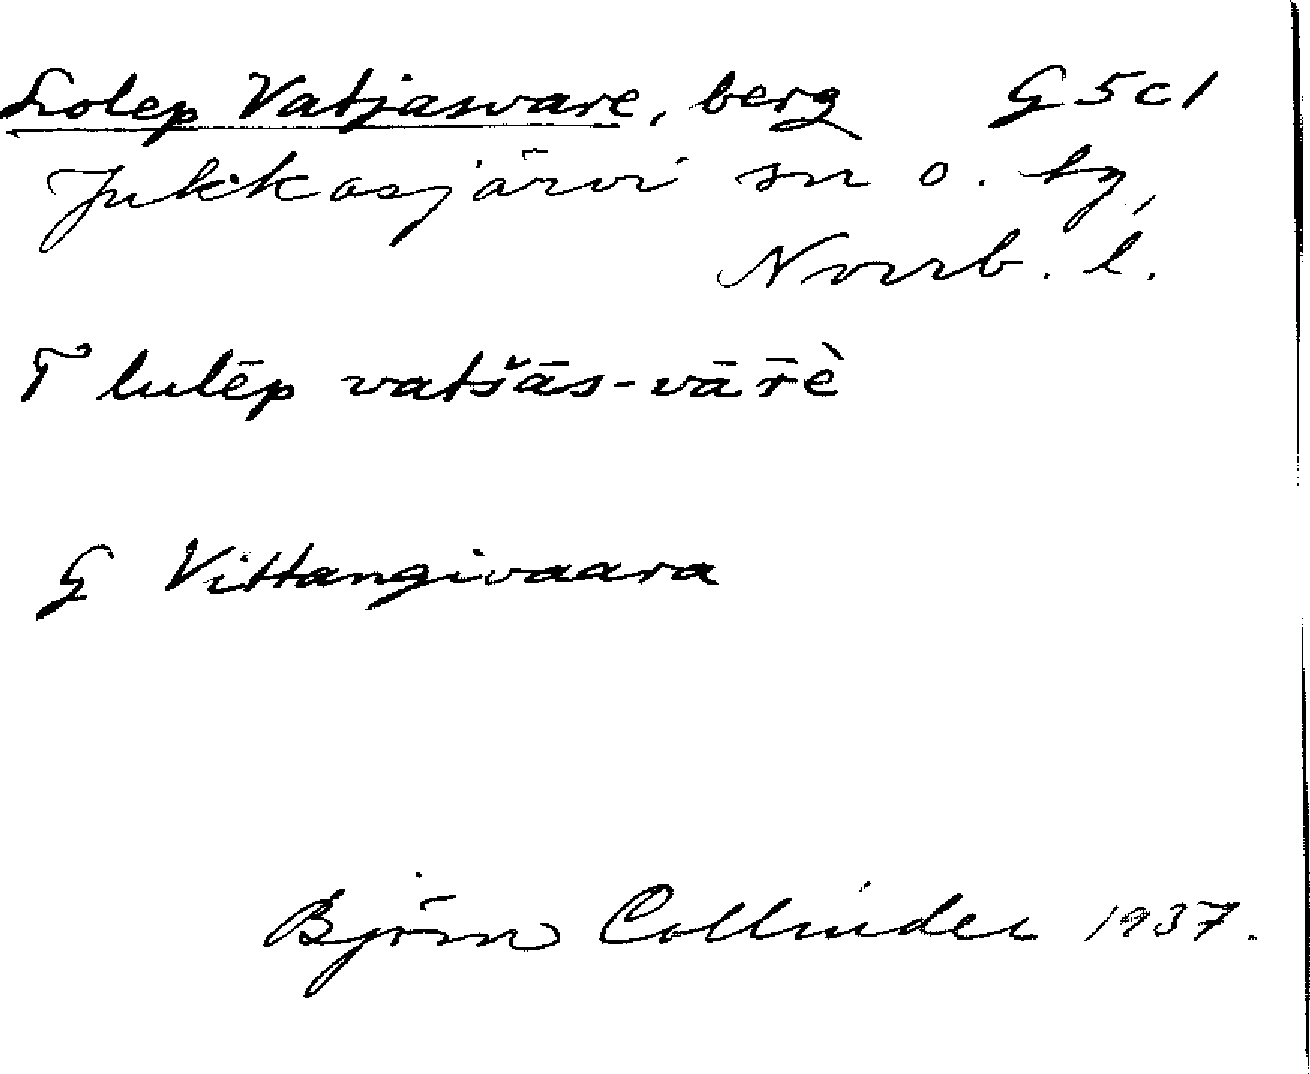 Lolep Vatjasvare, berg G5c1
Jukkasjärvi sn o. tg,
Norrb. l.
T lulēp vatšās-vār̄è
G Vittangivaara
Björn Collinder 1937.